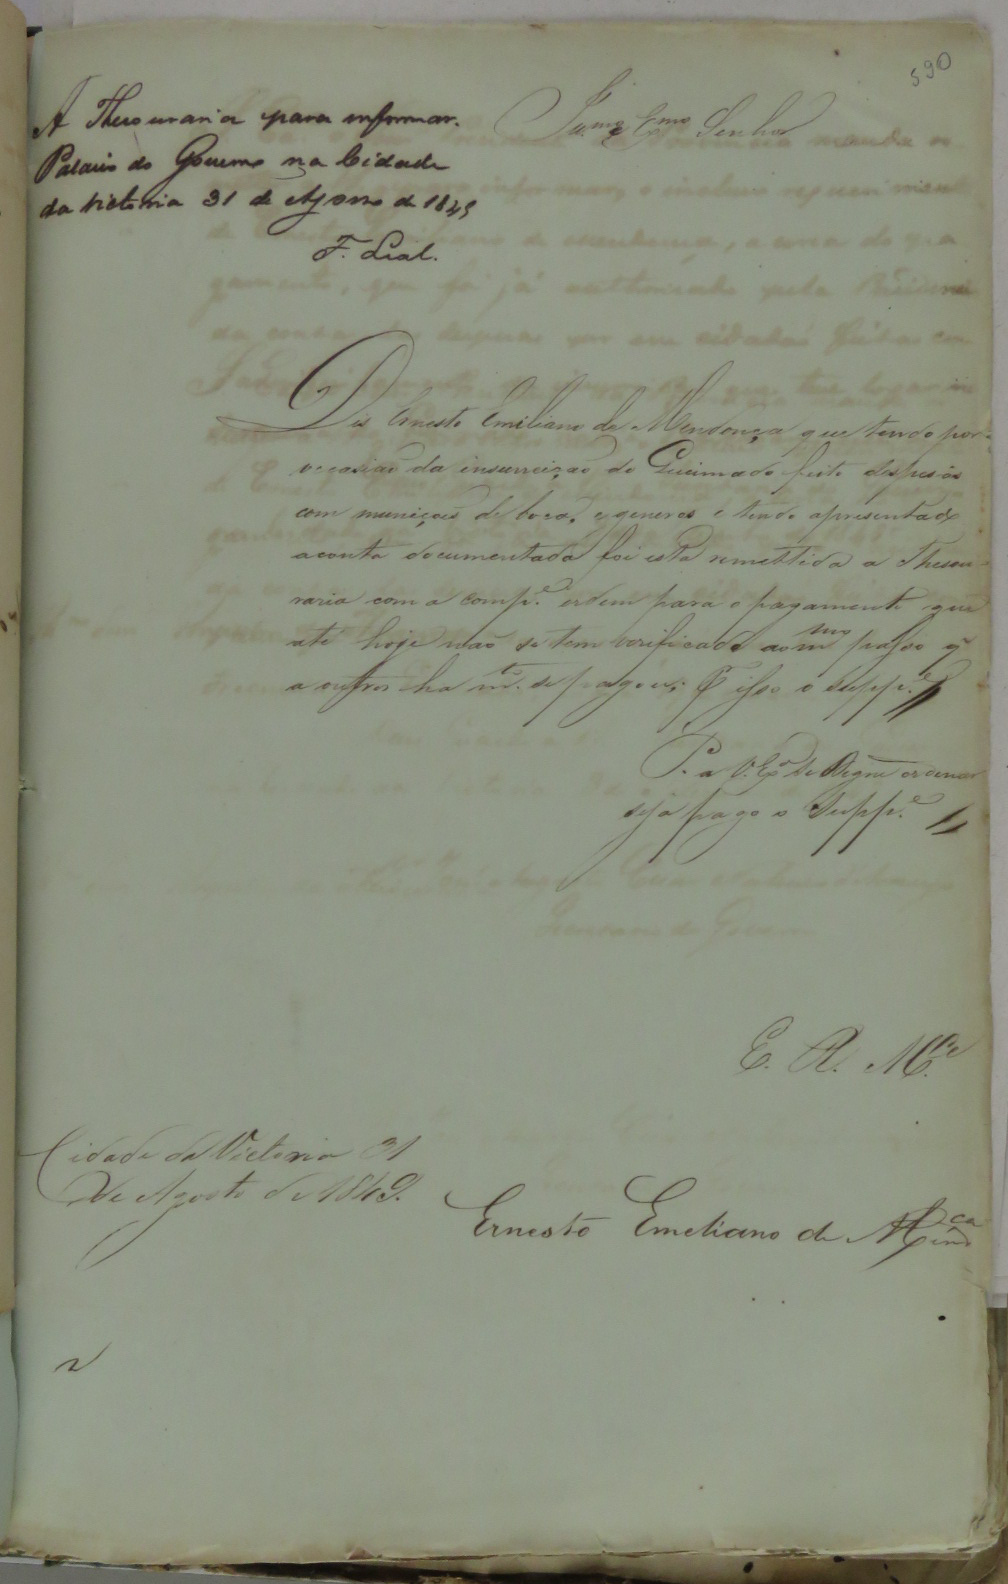 590
A Thesouraria para informar.
Palacio do Governo na Cidade
da Victoria 31 de Agosto de 1849
F. Leal.
Illmo e Exmo Senhor
Dis Ernesto Emiliano de Mendonça que tendo por
occasião da insurreição do Queimado feito despesas
com munições de boca, e generos e tendo apresentado
a conta documentada foi esta remettida a Thesou-
raria com a comp.e ordem para o pagamento que
até hoje não se tem verificado ao mmo passo q
a outros ha m.to se pagou; P isso o Supp.e
P. a V. Exa se digne ordenar
seja pago o Supp.e
E. R. M.ce
Cidade da Victoria 31
de Agosto de 1849.
Ernesto Emeliano de Mend.ça